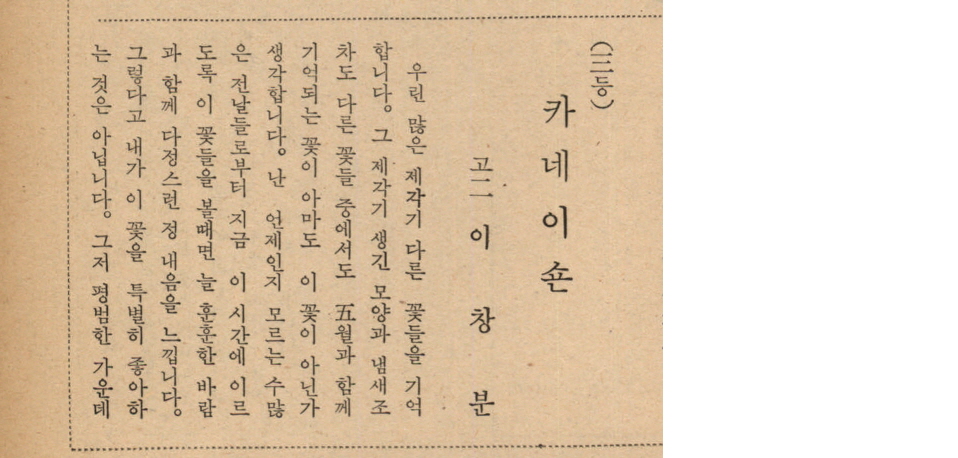 (三등)
카네이숀
고二 이창분
우린 많은 제각기 다른 꽃들을 기억
합니다。 그 제각기 생긴 모양과 냄새조
차도 다른 꽃들 중에서도 五월과 함께
기억되는 꽃이 아마도 이 꽃이 아닌가
생각합니다。 난 언제인지 모르는 수많
은 전날들로부터 지금 이 시간에 이르
도록 이 꽃들을 볼때면 늘 훈훈한 바람
과 함께 다정스런 정 내음을 느낍니다。
그렇다고 내가 이 꽃을 특별히 좋아하
는 것은 아닙니다。 그저 평범한 가운데